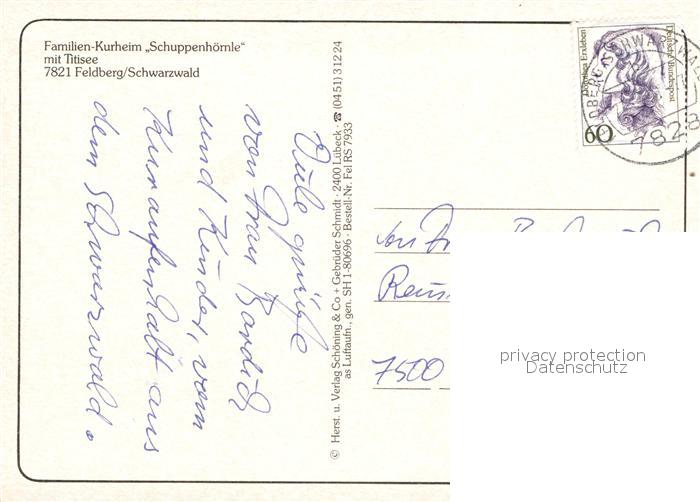 Familien-Kurheim „Schuppenhörnle“
mit Titisee
7821 Feldberg/Schwarzwald
Viele Grüße
von Frau
und Kinder, vom
Kuraufenthalt aus
dem Schwarzwald.
© Herst. u. Verlag Schöning & Co + Gebrüder Schmidt · 2400 Lübeck · ☎ (04 51) 3 12 24
as Luftaufn., gen. SH 1-80696 · Bestell-Nr. Fel RS 7933
Dorothea Erxleben
Deutsche Bundespost
60
SCHWARZWALD
7828
7500
privacy protection
Datenschutz